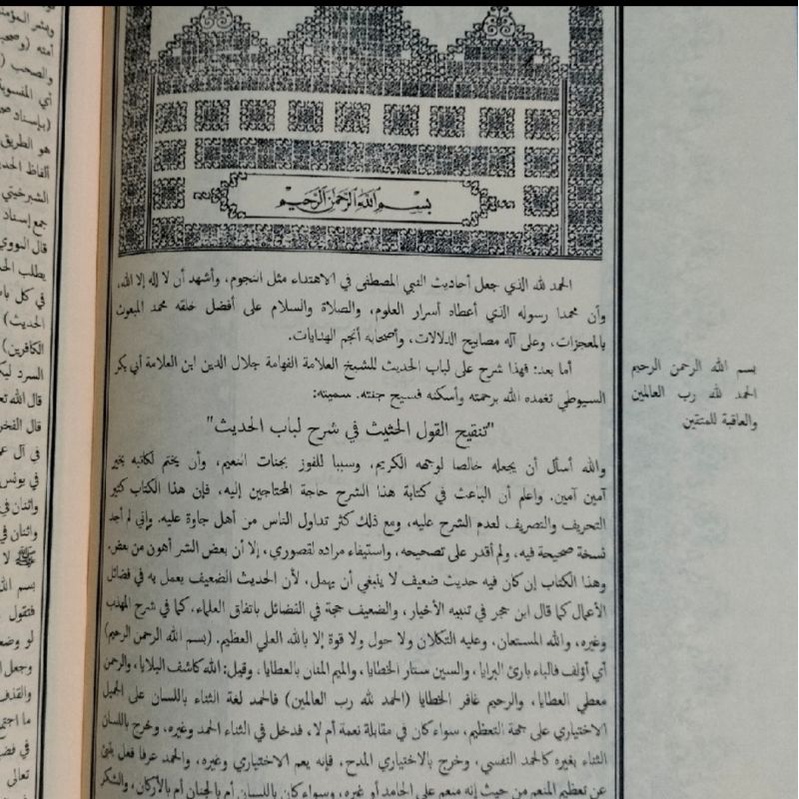 بسم الله الرحمن الرحيم
الحمد لله الذي جعل أحاديث النبي المصطفى في الاهتداء مثل النجوم، وأشهد أن لا إله إلا الله،
وأن محمدا رسوله الذي أعطاه أسرار العلوم، والصلاة والسلام على أفضل خلقه محمد المبعوث
بالمعجزات، وعلى آله مصابيح الدلالات، وأصحابه أنجم الهدايات.
أما بعد: فهذا شرح على لباب الحديث للشيخ العلامة الفهامة جلال الدين ابن العلامة أبي بكر
السيوطي تغمده الله برحمته وأسكنه فسيح جنته. سميته:
"تنقيح القول الحثيث في شرح لباب الحديث"
والله أسأل أن يجعله خالصا لوجهه الكريم، وسببا للفوز بجنات النعيم، وأن يختم لكاتبه بخير
آمين آمين. واعلم أن الباعث في كتابة هذا الشرح حاجة المحتاجين إليه، فإن هذا الكتاب كثير
التحريف والتصريف لعدم الشرح عليه، ومع ذلك كثر تداول الناس من أهل جاوة عليه. وإني لم أجد
نسخة صحيحة فيه، ولم أقدر على تصحيحه، واستيفاء مراده لقصوري، إلا أن بعض الشر أهون من بعض.
وهذا الكتاب إن كان فيه حديث ضعيف لا ينبغي أن يهمل، لأن الحديث الضعيف يعمل به في فضائل
الأعمال كما قال ابن حجر في تنبيه الأخيار، والضعيف حجة في الفضائل باتفاق العلماء، كما في شرح المهذب
وغيره، والله المستعان، وعليه التكلان ولا حول ولا قوة إلا بالله العلي العظيم. (بسم الله الرحمن الرحيم)
أي أؤلف فالباء بارئ البرايا، والسين ستار الخطايا، والميم المنان بالعطايا، وقيل: الله كاشف البلايا، والرحمن
معطي العطايا، والرحيم غافر الخطايا (الحمد لله رب العالمين) فالحمد لغة الثناء باللسان على الجميل
الاختياري على جهة التعظيم، سواء كان في مقابلة نعمة أم لا، فدخل في الثناء الحمد وغيره، وخرج باللسان
الثناء بغيره كالحمد النفسي، وخرج بالاختياري المدح، فإنه يعم الاختياري وغيره، والحمد عرفا فعل ينبئ
عن تعظيم المنعم من حيث إنه منعم على الحامد أو غيره، وسواء كان باللسان أم بالجنان أم بالأركان، والشكر
بسم الله الرحمن الرحيم
الحمد لله رب العالمين
والعاقبة للمتقين
والصحب
هو الطريق
ألفاظ الحديث
الشبرخيتي
جمع إسناد
قال النووي
في كل باب
الحديث)
الكافرين)
قال الفخر
في آل عمران
في يونس
واثنان في
واثنان في
ﷺ لا
بسم الله
فتقول
في فضل
تعالى